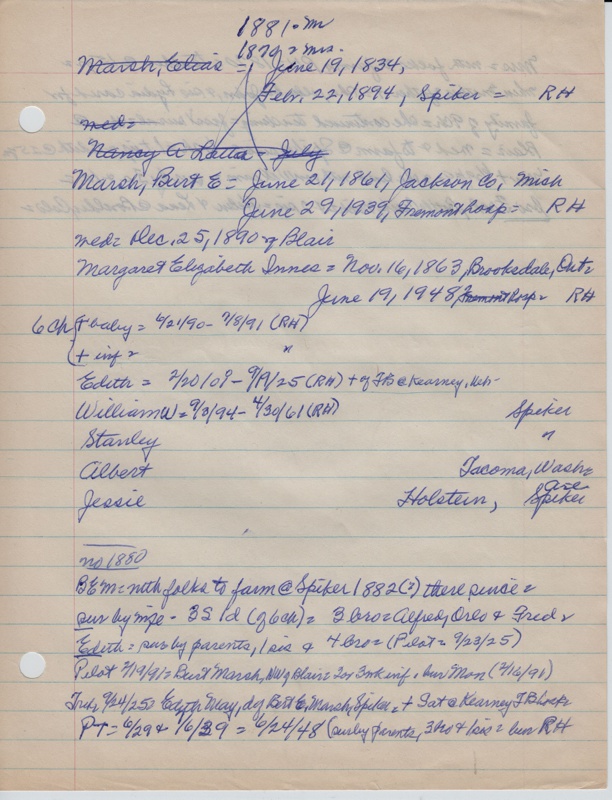 1881 = Mr
1870 = mrs.
Marsh, Elias = June 19, 1834,
Febr. 22, 1894, Spiker = RH
med =
Nancy A Latta - July
Marsh, Burt E = June 21, 1861, Jackson Co, Mich
June 29, 1939, Fremont hosp = RH
med = Dec. 25, 1890 @ Blair
Margaret Elizabeth Innes = Nov. 16, 1863, Brooksdale, Ont =
June 19, 1948, Fremont hosp = RH
6 ch { + baby = 6/21/90 - 7/8/91 (RH)
+ inf = "
Edith = 2/20/0? - 9/19/25 (RH) + of TB @ Kearney, Neb -
William W = 9/3/94 - 4/30/61 (RH) Spiker
Stanley "
Albert Tacoma, Wash =
Jessie Holstein, Spiker
no 1880
BEM = with folks to farm @ Spiker 1882 (?) there since =
sur by wife - 3S 1d (of 6 ch) = 3 bro = Alfred, Orlo & Fred =
Edith = sur by parents, 1 sis & 4 bro = (Pilot = 9/23/25)
Pilot 7/9/91 = Burt Marsh, NW of Blair = 2 or 3 mk inf = bur Mon (7/6/91)
Trib, 9/24/25 = Edith May, d of Bert E, Marsh, Spiker = + Sat @ Kearney TB hosp
PT = 6/29 & 7/6/39 = 6/24/48 (sur by parents, 3 bro & 1 sis = bur RH